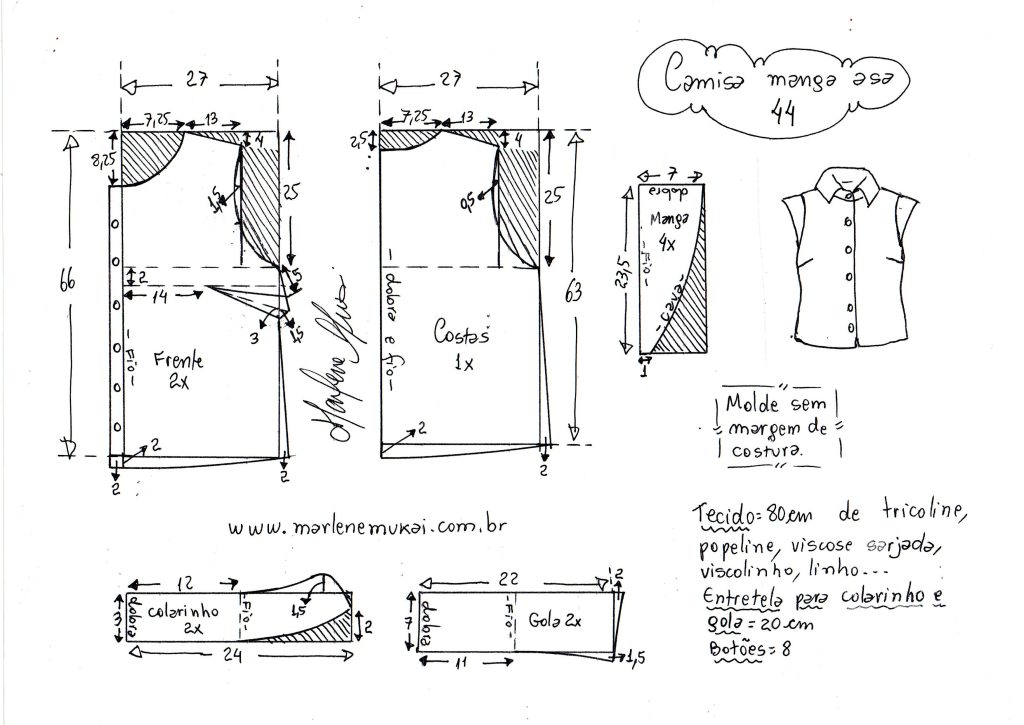 Camisa manga asa
44
27
7,25
13
4
8,25
1,5
25
66
2
14
5
3
1,5
Fio
Frente
2x
2
2
2
Marlene Mukai
27
7,25
13
4
2,5
0,5
25
63
dobra e fio
Costas
1x
2
2
7
dobra
Manga
4x
Fio
cava
23,5
1
Molde sem
margem de
costura.
www.marlenemukai.com.br
12
3
dobra
colarinho
2x
Fio
1,5
2
24
22
2
7
dobra
Fio
Gola 2x
11
1,5
Tecido = 80cm de tricoline,
popeline, viscose sarjada,
viscolinho, linho...
Entretela para colarinho e
gola = 20cm
Botões = 8